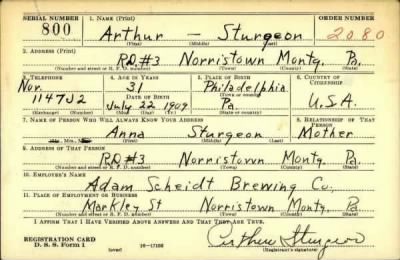 SERIAL NUMBER 1. NAME (Print) ORDER NUMBER
800 Arthur — Sturgeon 2080
(First) (Middle) (Last)
2. ADDRESS (Print)
RD.#3 Norristown Montg. Pa.
(Number and street or R. F. D. number) (Town) (County) (State)
3. TELEPHONE 4. AGE IN YEARS 5. PLACE OF BIRTH 6. COUNTRY OF CITIZENSHIP
Nor. 31 Philadelphia
DATE OF BIRTH (Town or county)
1147J2 July 22 1909 Pa. U.S.A.
(Exchange) (Number) (Mo.) (Day) (Yr.) (State or country)
7. NAME OF PERSON WHO WILL ALWAYS KNOW YOUR ADDRESS 8. RELATIONSHIP OF THAT PERSON
Mrs. Anna Sturgeon Mother
(First) (Middle) (Last)
9. ADDRESS OF THAT PERSON
RD.#3 Norristown Montg. Pa.
(Number and street or R. F. D. number) (Town) (County) (State)
10. EMPLOYER'S NAME
Adam Scheidt Brewing Co.
11. PLACE OF EMPLOYMENT OR BUSINESS
Markley St Norristown Montg. Pa.
(Number and street or R. F. D. number) (Town) (County) (State)
I AFFIRM THAT I HAVE VERIFIED ABOVE ANSWERS AND THAT THEY ARE TRUE.
REGISTRATION CARD
D. S. S. FORM 1 (over) 16—17105 Arthur Sturgeon
(Registrant's signature)